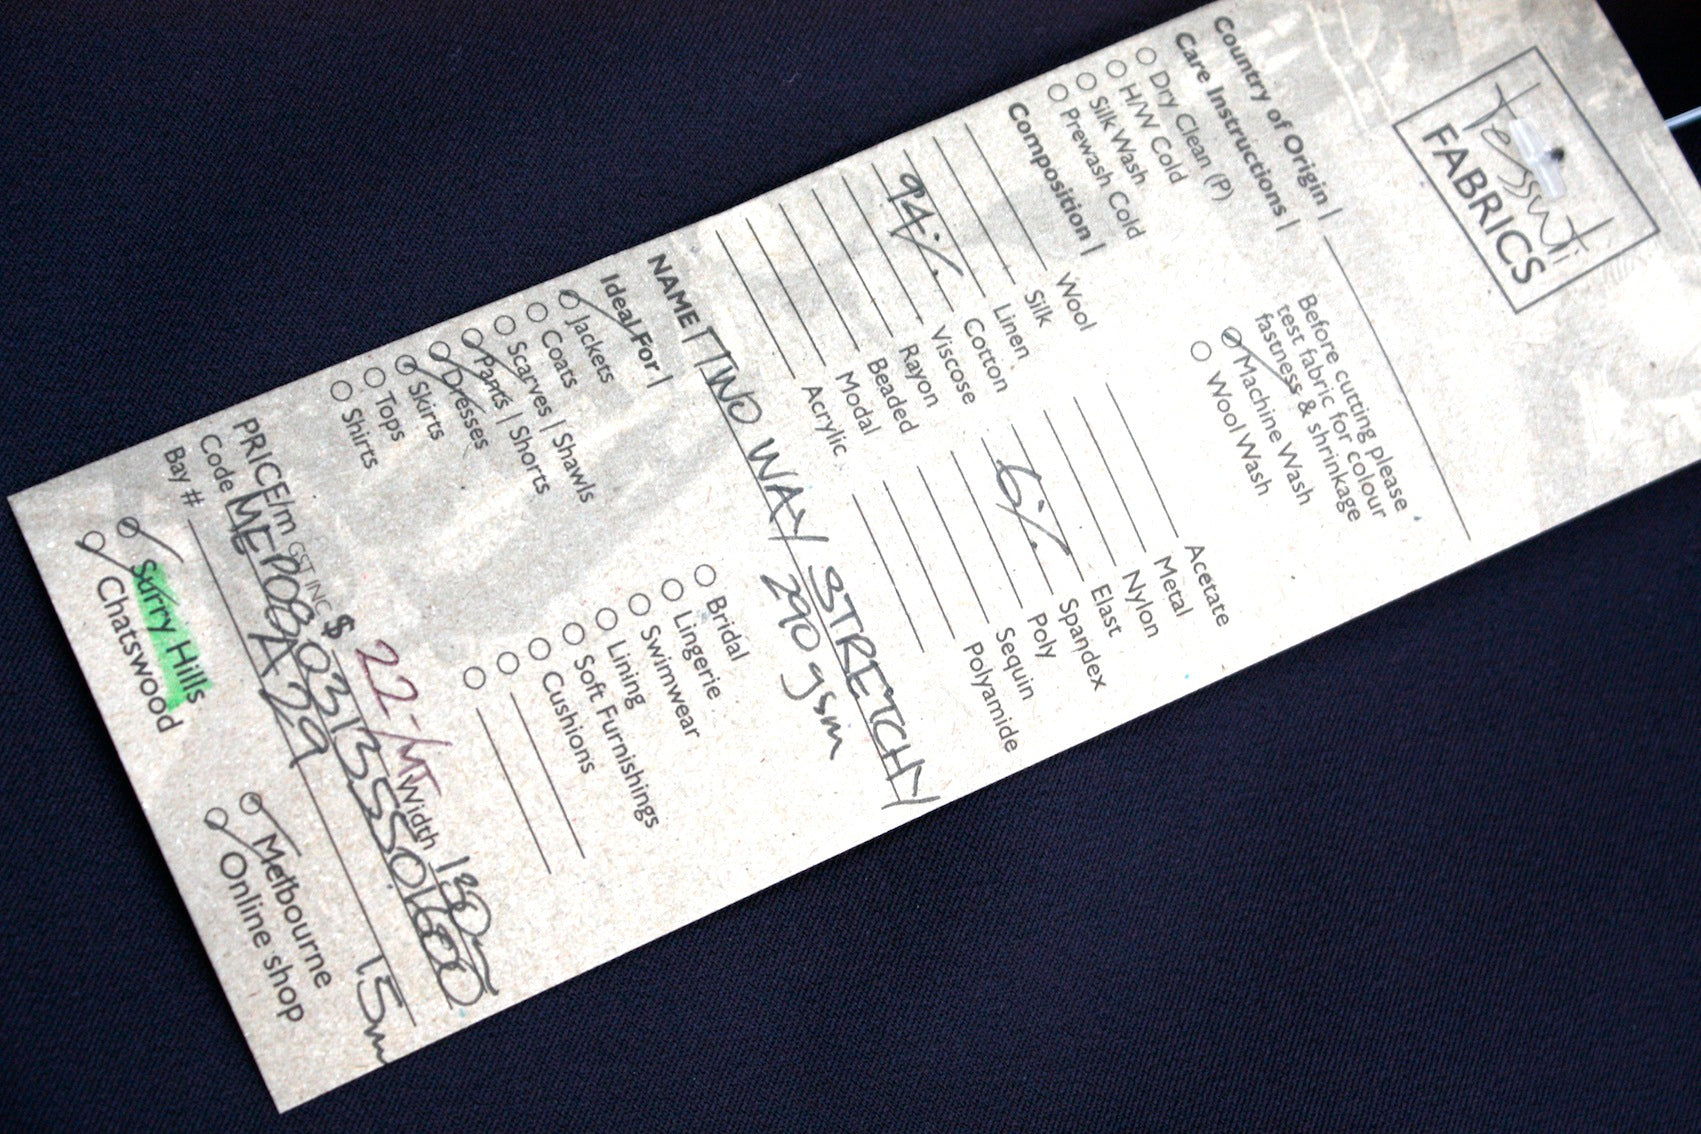 tessuti
FABRICS
Country of Origin |
Before cutting please
test fabric for colour
fastness & shrinkage
Care Instructions |
Dry Clean (P)
Machine Wash
H/W Cold
Wool Wash
Silk Wash
Prewash Cold
Composition |
Wool Acetate
Silk Metal
Linen Nylon
Cotton Elast
94% Viscose 6% Spandex
Rayon Poly
Beaded Sequin
Modal Polyamide
Acrylic
NAME | TWO WAY STRETCHY
290 gsm
Ideal For |
Jackets Bridal
Coats Lingerie
Scarves | Shawls Swimwear
Pants | Shorts Lining
Dresses Soft Furnishings
Skirts Cushions
Tops
Shirts
PRICE/m GST INC $ 22-/MT Width
Code
Bay # A29 15m
Surry Hills Melbourne
Chatswood Online shop